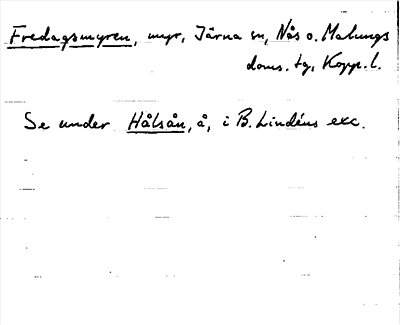 Fredagsmyren, myr, Järna sn, Nås o. Malungs
doms. tg, Kopp. l.
Se under Hålsån, å, i B. Lindéns exc.